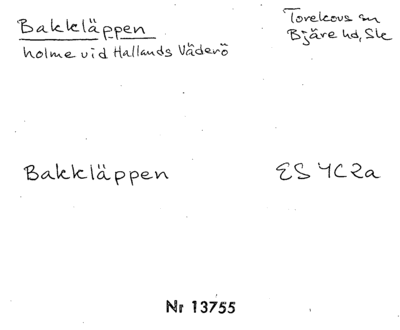 Bakkläppen
holme vid Hallands Väderö
Torekovs sn
Bjäre hd, Sk
Bakkläppen
ES 4C2a
Nr 13755